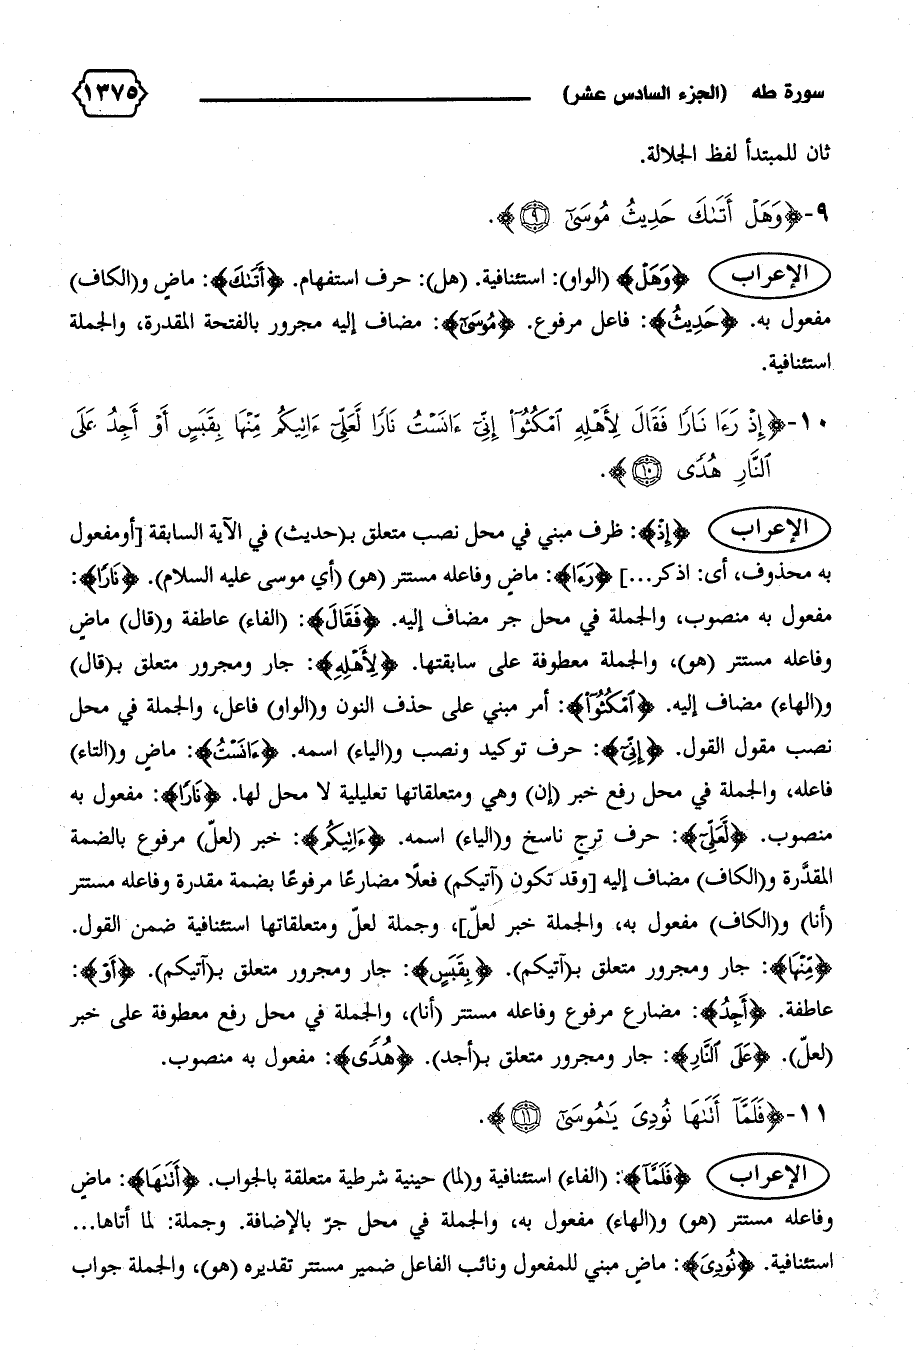 سورة طه (الجزء السادس عشر) ١٣٧٥
ثان للمبتدأ لفظ الجلالة.
٩-﴿وَهَلْ أَتَىٰكَ حَدِيثُ مُوسَىٰٓ ٩﴾.
الإعراب ﴿وَهَلْ﴾ (الواو): استئنافية. (هل): حرف استفهام. ﴿أَتَىٰكَ﴾: ماضٍ و(الكاف)
مفعول به. ﴿حَدِيثُ﴾: فاعل مرفوع. ﴿مُوسَىٰٓ﴾: مضاف إليه مجرور بالفتحة المقدرة، والجملة
استئنافية.
١٠-﴿إِذْ رَءَا نَارًا فَقَالَ لِأَهْلِهِ ٱمْكُثُوٓا۟ إِنِّىٓ ءَانَسْتُ نَارًا لَّعَلِّىٓ ءَاتِيكُم مِّنْهَا بِقَبَسٍ أَوْ أَجِدُ عَلَى
ٱلنَّارِ هُدًى ١٠﴾.
الإعراب ﴿إِذْ﴾: ظرف مبني في محل نصب متعلق بـ(حديث) في الآية السابقة [أومفعول
به محذوف، أى: اذكر...] ﴿رَءَا﴾: ماضٍ وفاعله مستتر (هو) (أي موسى عليه السلام). ﴿نَارًا﴾:
مفعول به منصوب، والجملة في محل جر مضاف إليه. ﴿فَقَالَ﴾: (الفاء) عاطفة و(قال) ماضٍ
وفاعله مستتر (هو)، والجملة معطوفة على سابقتها. ﴿لِأَهْلِهِ﴾: جار ومجرور متعلق بـ(قال)
و(الهاء) مضاف إليه. ﴿ٱمْكُثُوٓا۟﴾: أمر مبني على حذف النون و(الواو) فاعل، والجملة في محل
نصب مقول القول. ﴿إِنِّىٓ﴾: حرف توكيد ونصب و(الياء) اسمه. ﴿ءَانَسْتُ﴾: ماضٍ و(التاء)
فاعله، والجملة في محل رفع خبر (إن) وهي ومتعلقاتها تعليلية لا محل لها. ﴿نَارًا﴾: مفعول به
منصوب. ﴿لَّعَلِّىٓ﴾: حرف ترجٍ ناسخ و(الياء) اسمه. ﴿ءَاتِيكُم﴾: خبر (لعلّ) مرفوع بالضمة
المقدَّرة و(الكاف) مضاف إليه [وقد تكون (آتيكم) فعلًا مضارعًا مرفوعًا بضمة مقدرة وفاعله مستتر
(أنا) و(الكاف) مفعول به، والجملة خبر لعلّ]، وجملة لعلّ ومتعلقاتها استئنافية ضمن القول.
﴿مِّنْهَا﴾: جار ومجرور متعلق بـ(آتيكم). ﴿بِقَبَسٍ﴾: جار ومجرور متعلق بـ(آتيكم). ﴿أَوْ﴾:
عاطفة. ﴿أَجِدُ﴾: مضارع مرفوع وفاعله مستتر (أنا)، والجملة في محل رفع معطوفة على خبر
(لعلّ). ﴿عَلَى ٱلنَّارِ﴾: جار ومجرور متعلق بـ(أجد). ﴿هُدًى﴾: مفعول به منصوب.
١١-﴿فَلَمَّآ أَتَىٰهَا نُودِىَ يَٰمُوسَىٰٓ ١١﴾.
الإعراب ﴿فَلَمَّآ﴾: (الفاء) استئنافية و(لما) حينية شرطية متعلقة بالجواب. ﴿أَتَىٰهَا﴾: ماضٍ
وفاعله مستتر (هو) و(الهاء) مفعول به، والجملة في محل جرّ بالإضافة. وجملة: لما أتاها...
استئنافية. ﴿نُودِىَ﴾: ماضٍ مبني للمفعول ونائب الفاعل ضمير مستتر تقديره (هو)، والجملة جواب